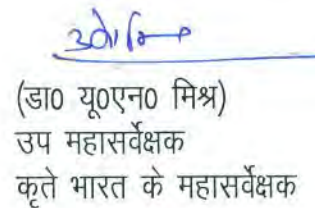 (डा0 यू०एन० मिश्र)
उप महासर्वेक्षक
कृते भारत के महासर्वेक्षक